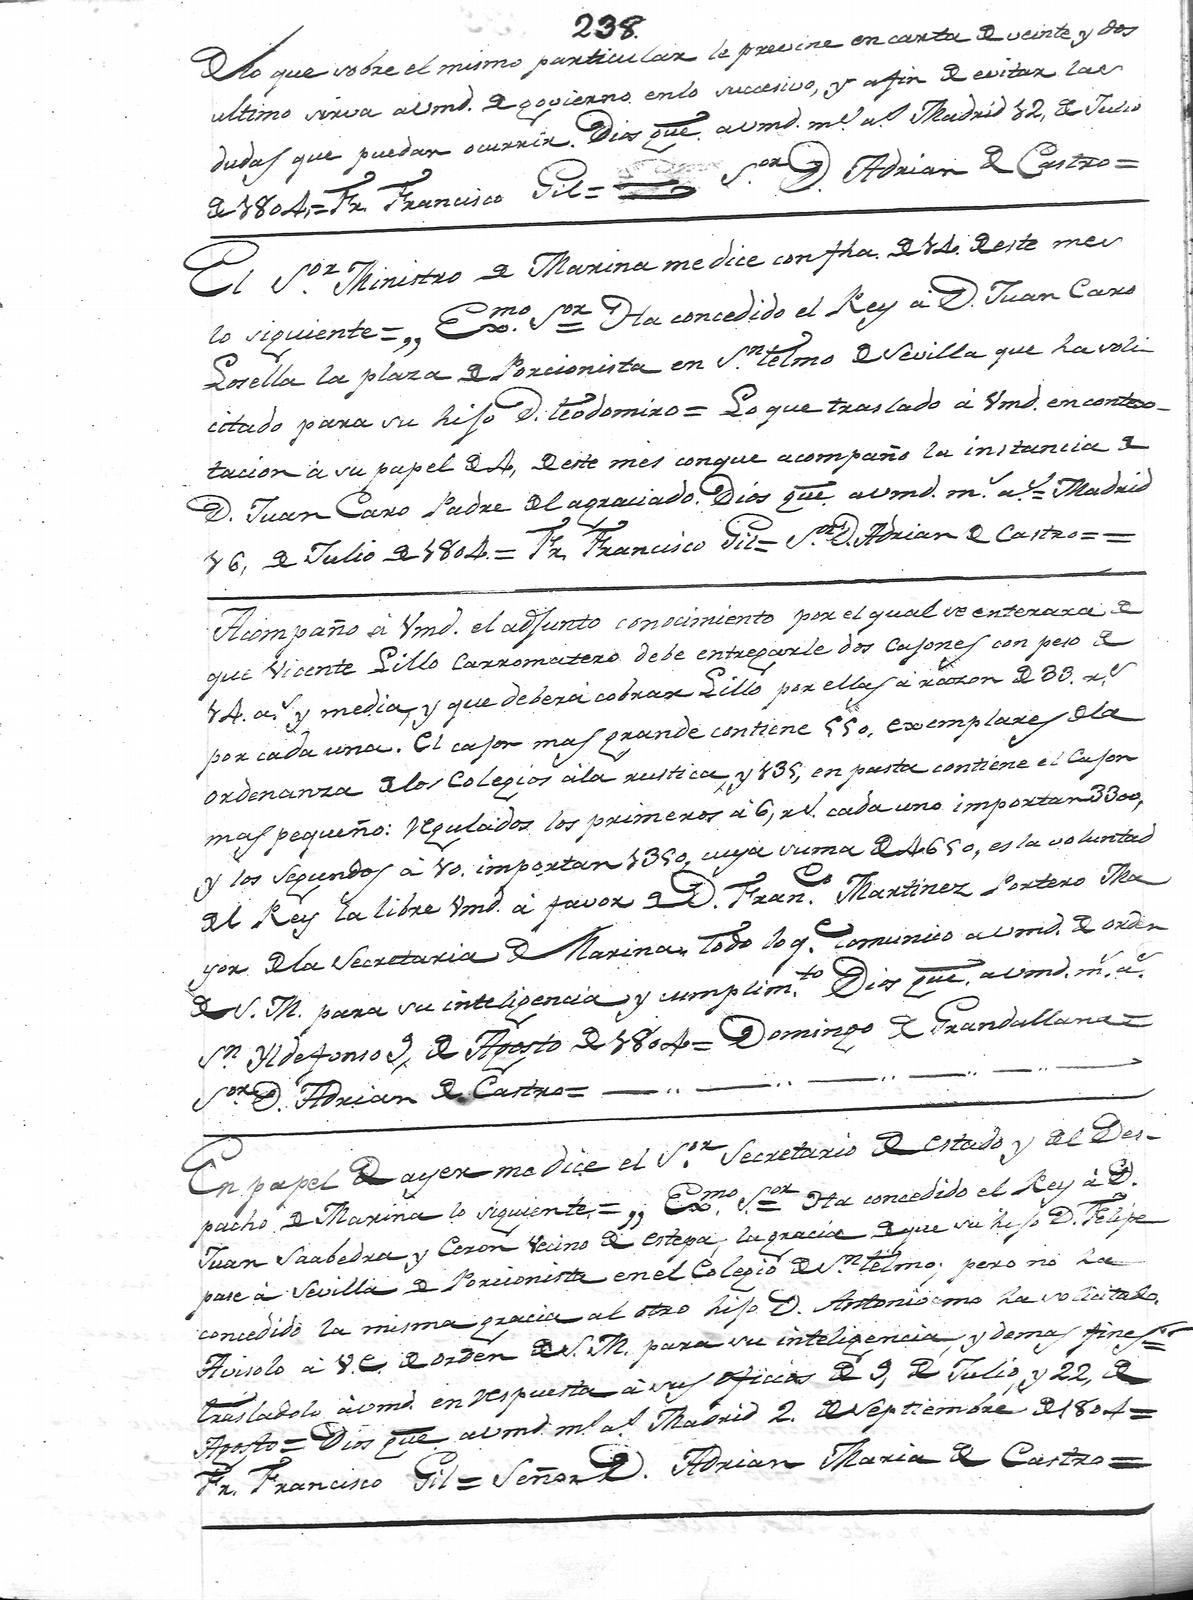 238.
D lo que sobre el mismo particular le previne en carta de veinte y dos
ultimo sirva a vmd. de govierno en lo succesivo, y afin de evitar las
dudas que puedan ocurrir. Dios gue. a vmd. ms. as. Madrid 12, de Julio
de 1804,=Fr. Francisco Gil= S.or D. Adrian de Castro=
El S.or Ministro de Marina me dice con fha. de 14. de este mes
lo siguiente=,, Exmo. S.or= Ha concedido el Rey á D. Juan Caro
Losella la plaza de Porcionista en S.n telmo de Sevilla que ha soli
citado para su hijo D. teodomiro= Lo que traslado á Vmd. en contex-
tacion à su papel de 4, de este mes conque acompaño la instancia de
D. Juan Caro Padre del agraciado. Dios gue. a vmd. m.s a.s= Madrid
16, de Julio de 1804.= Fr. Francisco Gil= S.or D. Adrian de Castro==
Acompaño à Vmd. el adjunto conocimiento por el qual se enterara de
que Vicente Lillo Carromatero debe entregarle dos Cajones con peso de
14. a.s y media, y que deberá cobrar Lillo por ellas à razon de 33. r.s
por cada una. El cajon mas grande contiene 550, exemplares de la
ordenanza de los Colegios à la rustica, y 135, en pasta contiene el Cajon
mas pequeño: regulados los primeros à 6, rs. cada uno importan 3300,
y los segundos à 10. importan 1350, cuya suma de 4650, es la voluntad
del Rey la libre Vmd. á favor de D. Fran.co Martinez Portero Ma
yor de la Secretaria de Marina. todo lo q.e comunico a vmd. de orden
de S. M. para su inteligencia y cumplim.to Dios gue. a vmd. m.s a.s
S.n Yldefonso 9, de Agosto de 1804= Domingo de Grandallana=
S.or D. Adrian de Castro=
En papel de ayer me dice el S.or Secretario de estado y del Des-
pacho de Marina lo siguiente=,, Exmo. S.or= Ha concedido el Rey á D.
Juan Saabedra y Ceron Vecino de estepa, la gracia de que su hijo D. Felipe
pase à Sevilla de Porcionista en el Colegio de S.n telmo; pero no ha
concedido la misma gracia al otro hijo D. Antonio como ha solicitado.
Avisolo à V.E. de orden de S. M. para su inteligencia, y demas fines=
trasladolo à vmd. en respuesta à sus oficios de 9, de Julio, y 22, de
Agosto= Dios gue. a vmd. ms. as. Madrid 2. de Septiembre de 1804=
Fr. Francisco Gil= Señor D. Adrian Maria de Castro=